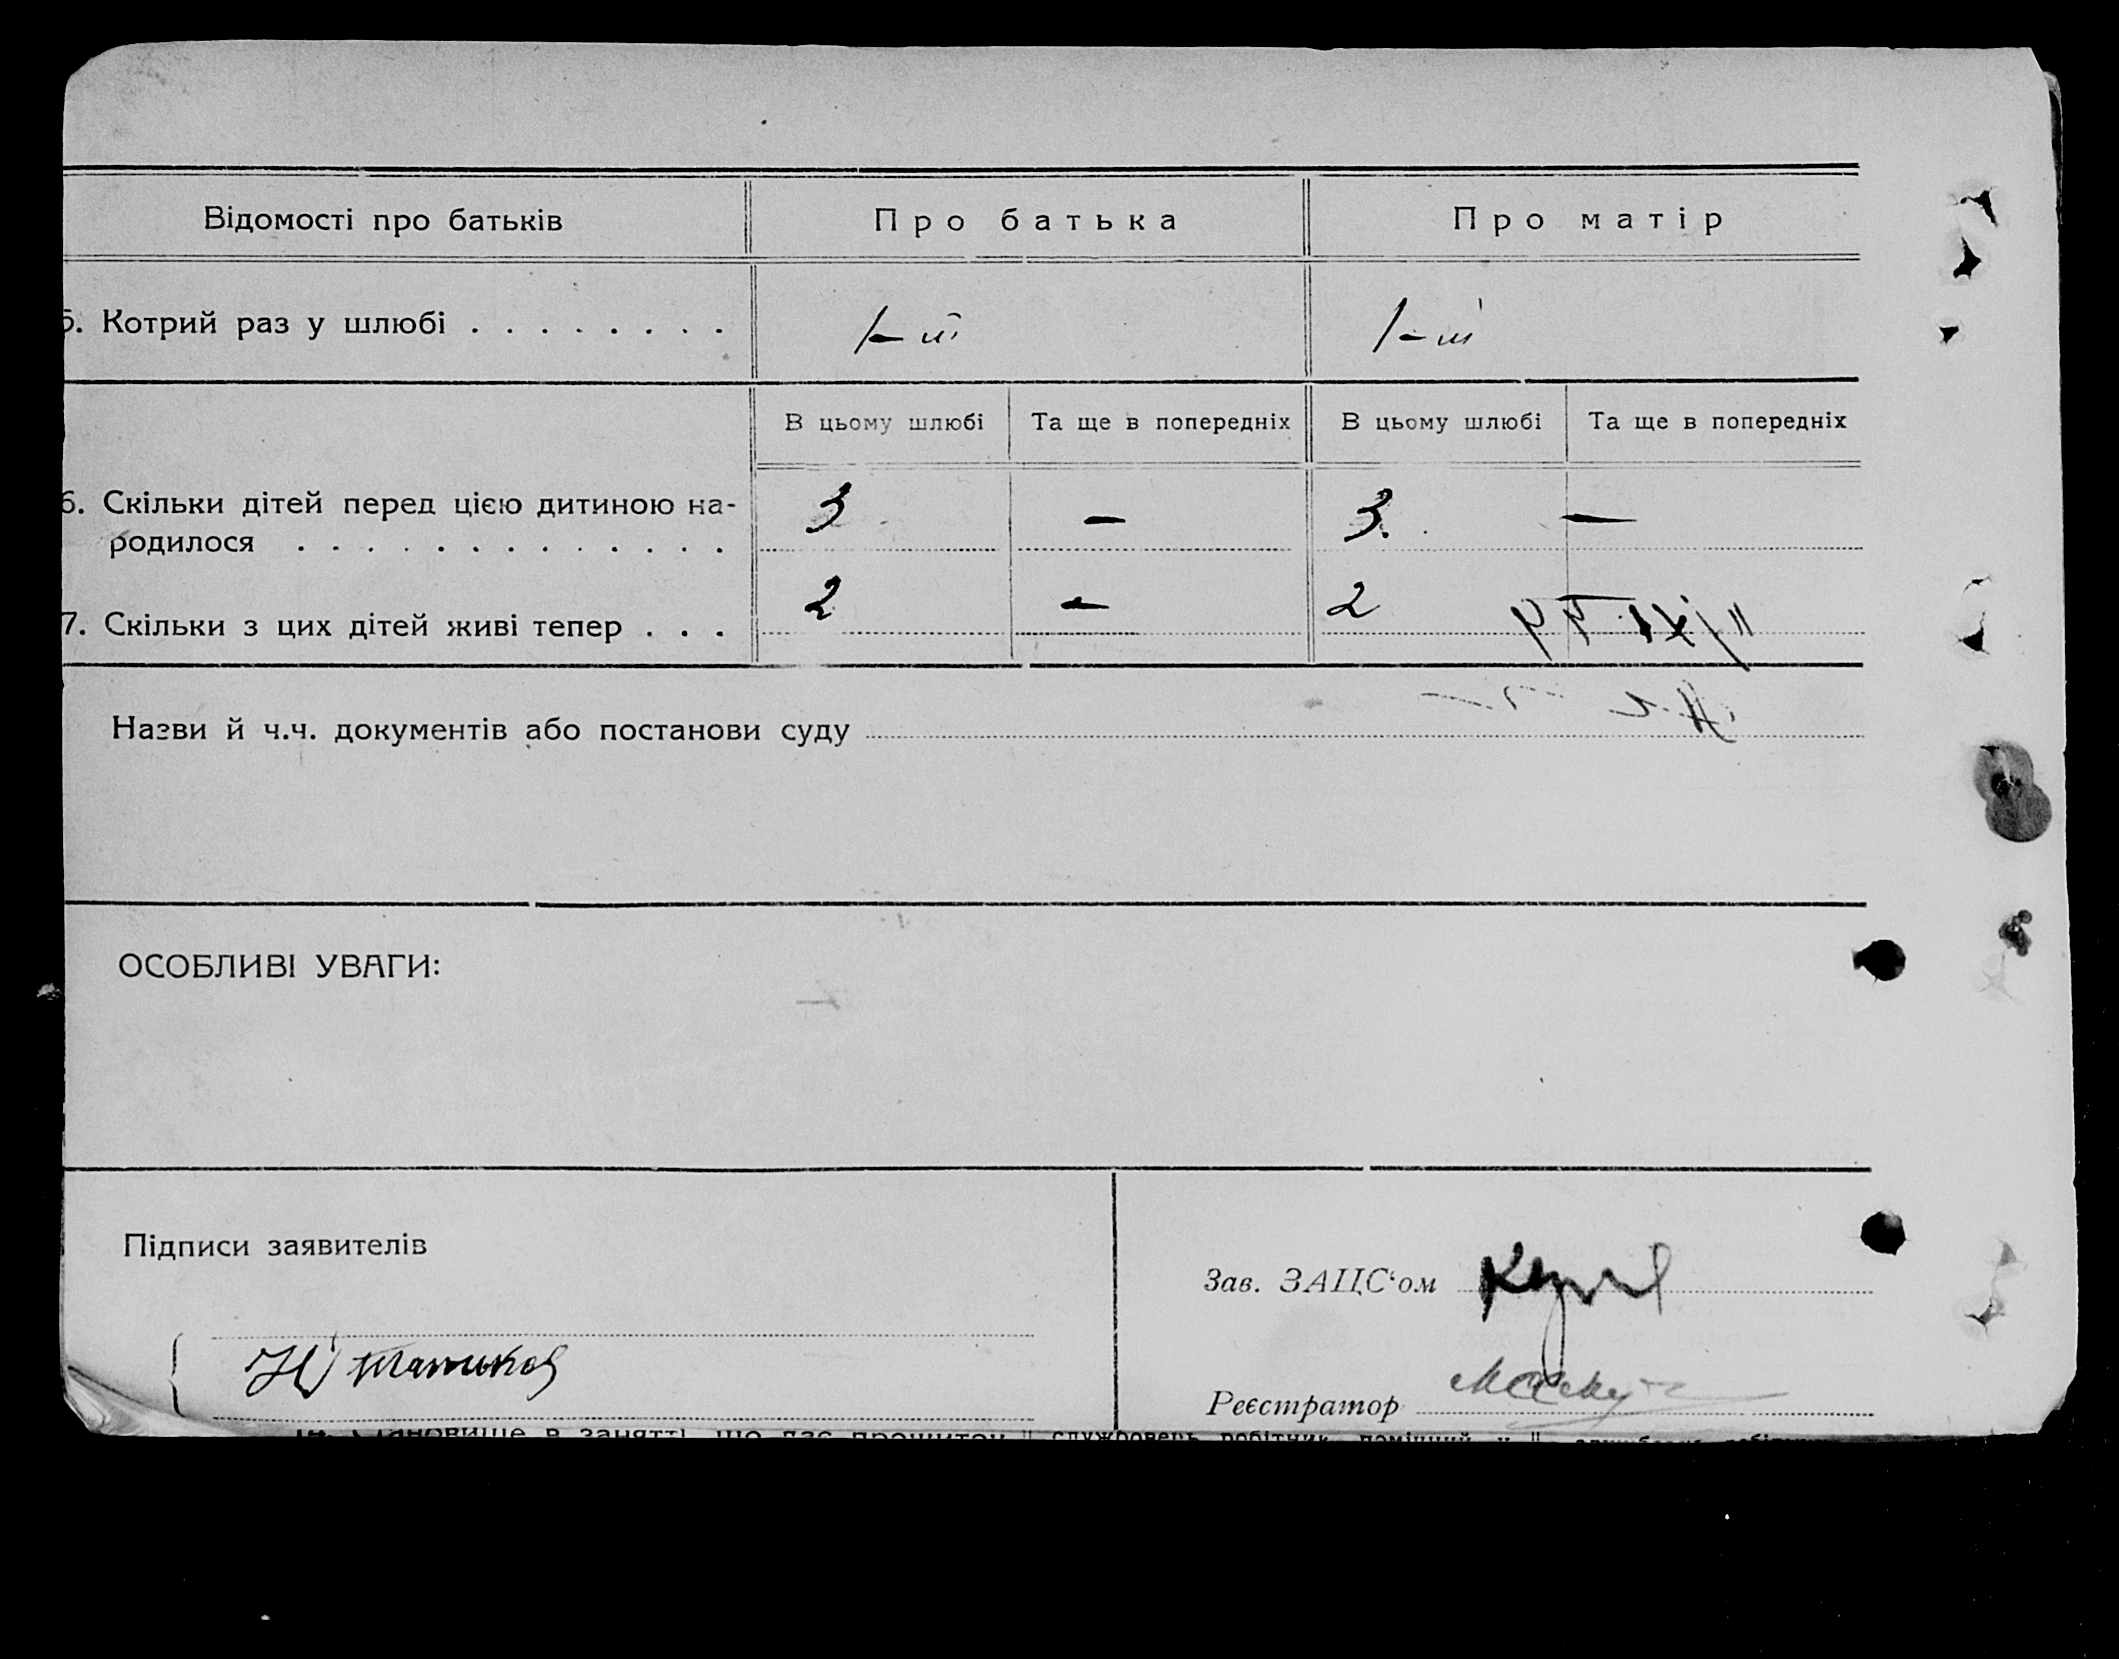 Відомості про батьків Про батька Про матір
5. Котрий раз у шлюбі . . . . . . . . 1-ш 1-ш
В цьому шлюбі Та ще в попередніх В цьому шлюбі Та ще в попередніх
6. Скільки дітей перед цією дитиною на- 3 — 3. —
родилося . . . . . . . . . . . . .
7. Скільки з цих дітей живі тепер . . . 2 — 2
Назви й ч.ч. документів або постанови суду
ОСОБЛИВІ УВАГИ:
Підписи заявителів
Зав. ЗАЦС‘ом
Реєстратор
14. Становище в занятті, що дає прошиток службовець, робітник, помічний